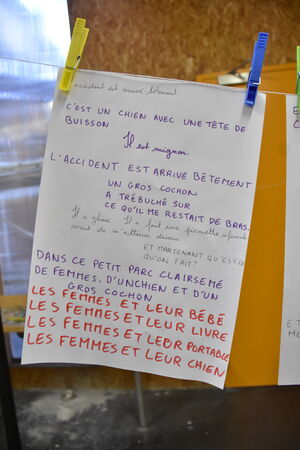 accident est arrivé bêtement
C'EST UN CHIEN AVEC UNE TÊTE DE
BUISSON
Il est mignon.
L'ACCIDENT EST ARRIVÉ BÊTEMENT
UN GROS COCHON
A TRÉBUCHÉ SUR
CE QU'IL ME RESTAIT DE BRAS.
Il a glissé. Il a fait une pirouette
avant de m'atterrir dessus
ET MAINTENANT QU'EST-CE
QU'ON FAIT?
DANS CE PETIT PARC CLAIRSEMÉ
DE FEMMES, D'UNCHIEN ET D'UN
GROS COCHON
LES FEMMES ET LEUR BÉBÉ
LES FEMMES ET LEUR LIVRE
LES FEMMES ET LEUR PORTABLE
LES FEMMES ET LEUR CHIEN
ET